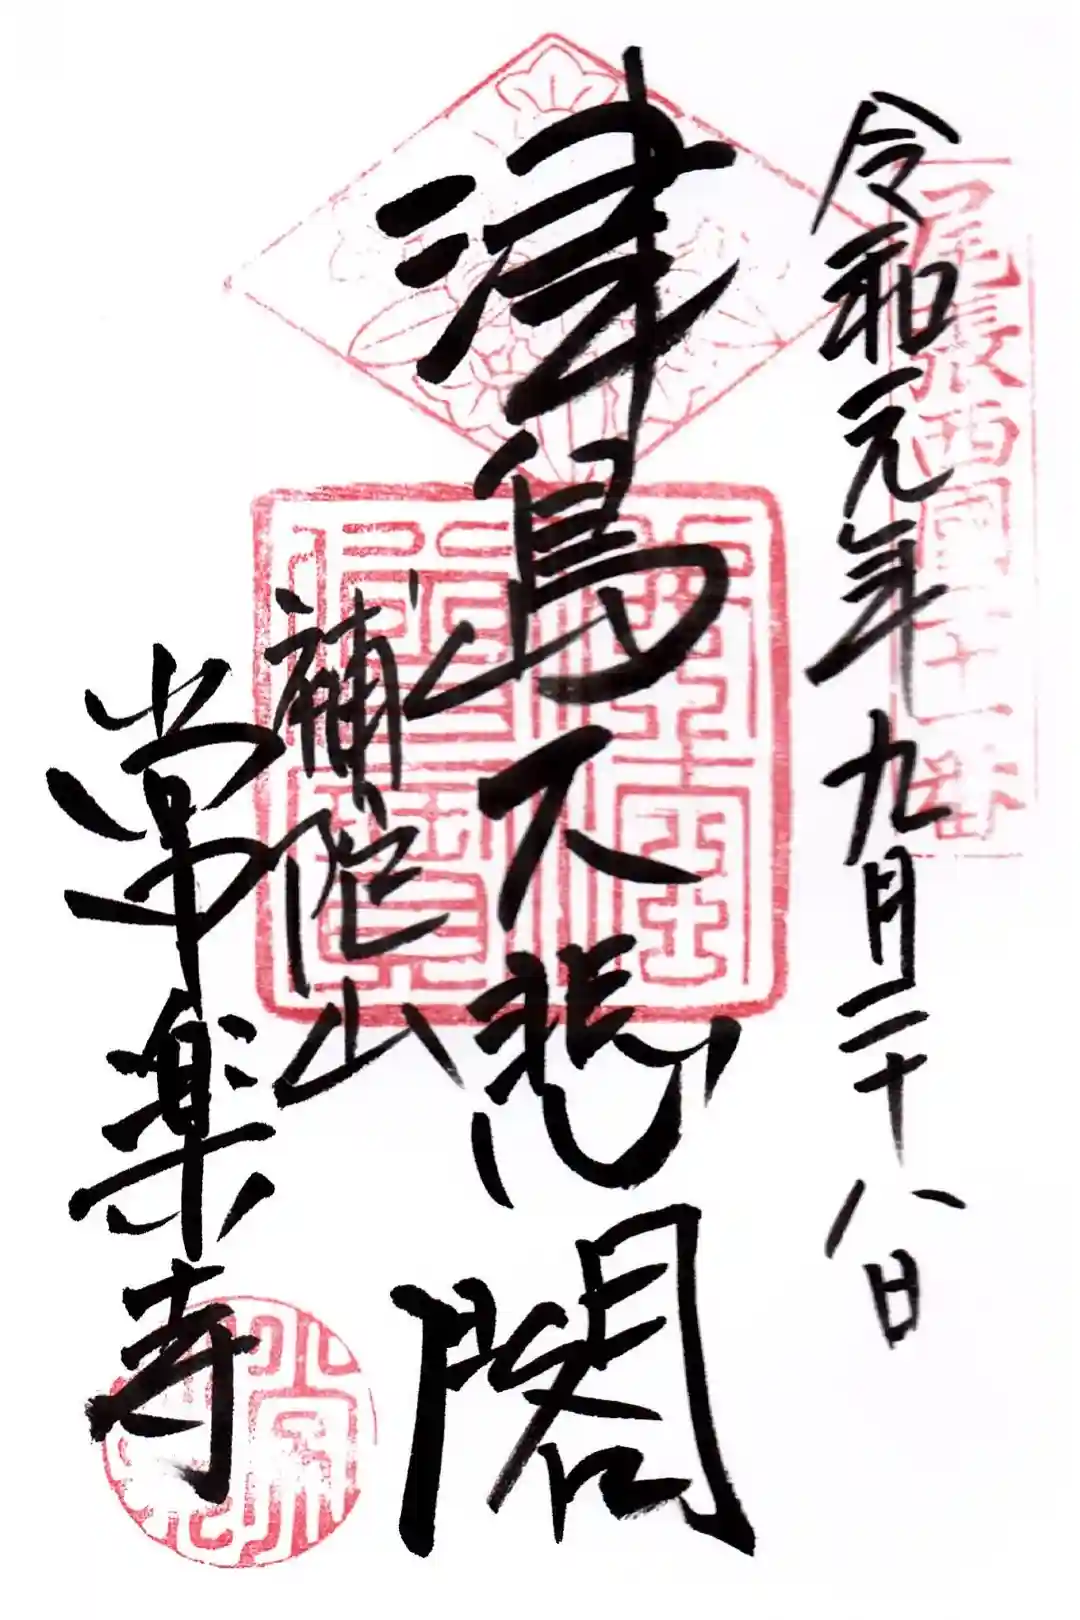 令和元年九月二十八日
尾張西国二十一番
津島大悲閣
補陀山
常楽寺